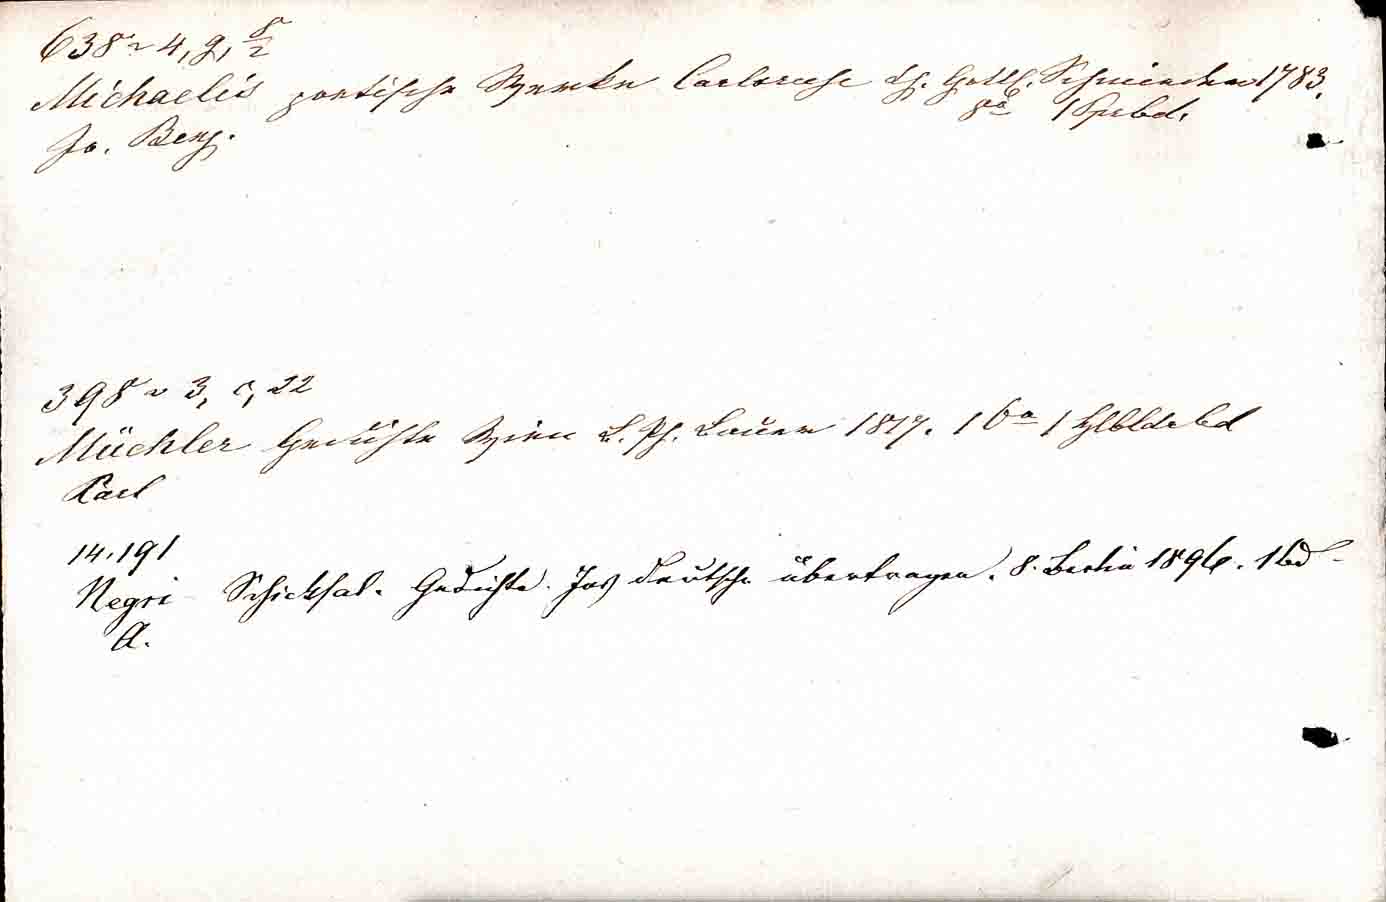 638 ~ 4, g, 8/2
Michaelis poetische Werke Carlsruhe Ch. Gottl. Schmieder 1783.
8° 1 Ppbd.
Jo. Benj.
398 ~ 3, c, 22
Müchler Gedichte Wien B. Ph. Bauer 1817. 16° 1 Hlbldrbd
Karl
14.191
Negri Schicksal. Gedichte. Ins deutsche übertragen. 8. Berlin 1896. 1 bd
A.